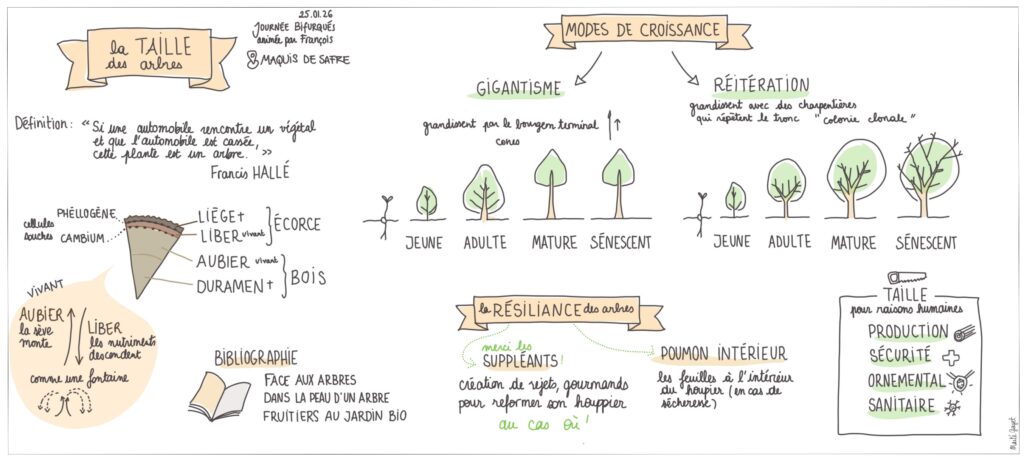 la TAILLE
des arbres
25.01.26
JOURNÉE BIFURQUÉS
animée par François
MAQUIS DE SAFRE
Définition : " Si une automobile rencontre un végétal
et que l'automobile est cassée,
cette plante est un arbre. "
Francis HALLÉ
cellules
souches
PHELLOGÈNE
CAMBIUM
LIÈGE +
LIBER vivant
ÉCORCE
AUBIER vivant
DURAMEN +
BOIS
VIVANT
AUBIER
la sève
monte
LIBER
les nutriments
descendent
comme une fontaine
BIBLIOGRAPHIE
FACE AUX ARBRES
DANS LA PEAU D'UN ARBRE
FRUITIERS AU JARDIN BIO
MODES DE CROISSANCE
GIGANTISME
grandissent par le bourgeon terminal
cones
JEUNE ADULTE MATURE SÉNESCENT
RÉITÉRATION
grandissent avec des charpentières
qui répètent le tronc "colonie clonale"
JEUNE ADULTE MATURE SÉNESCENT
la RÉSILIANCE des arbres
merci les
SUPPLÉANTS !
création de rejets, gourmands
pour reformer son houppier
au cas où !
POUMON INTÉRIEUR
les feuilles à l'intérieur
du houpier (en cas de
sécheresse)
TAILLE
pour raisons humaines
PRODUCTION
SÉCURITÉ
ORNEMENTAL
SANITAIRE